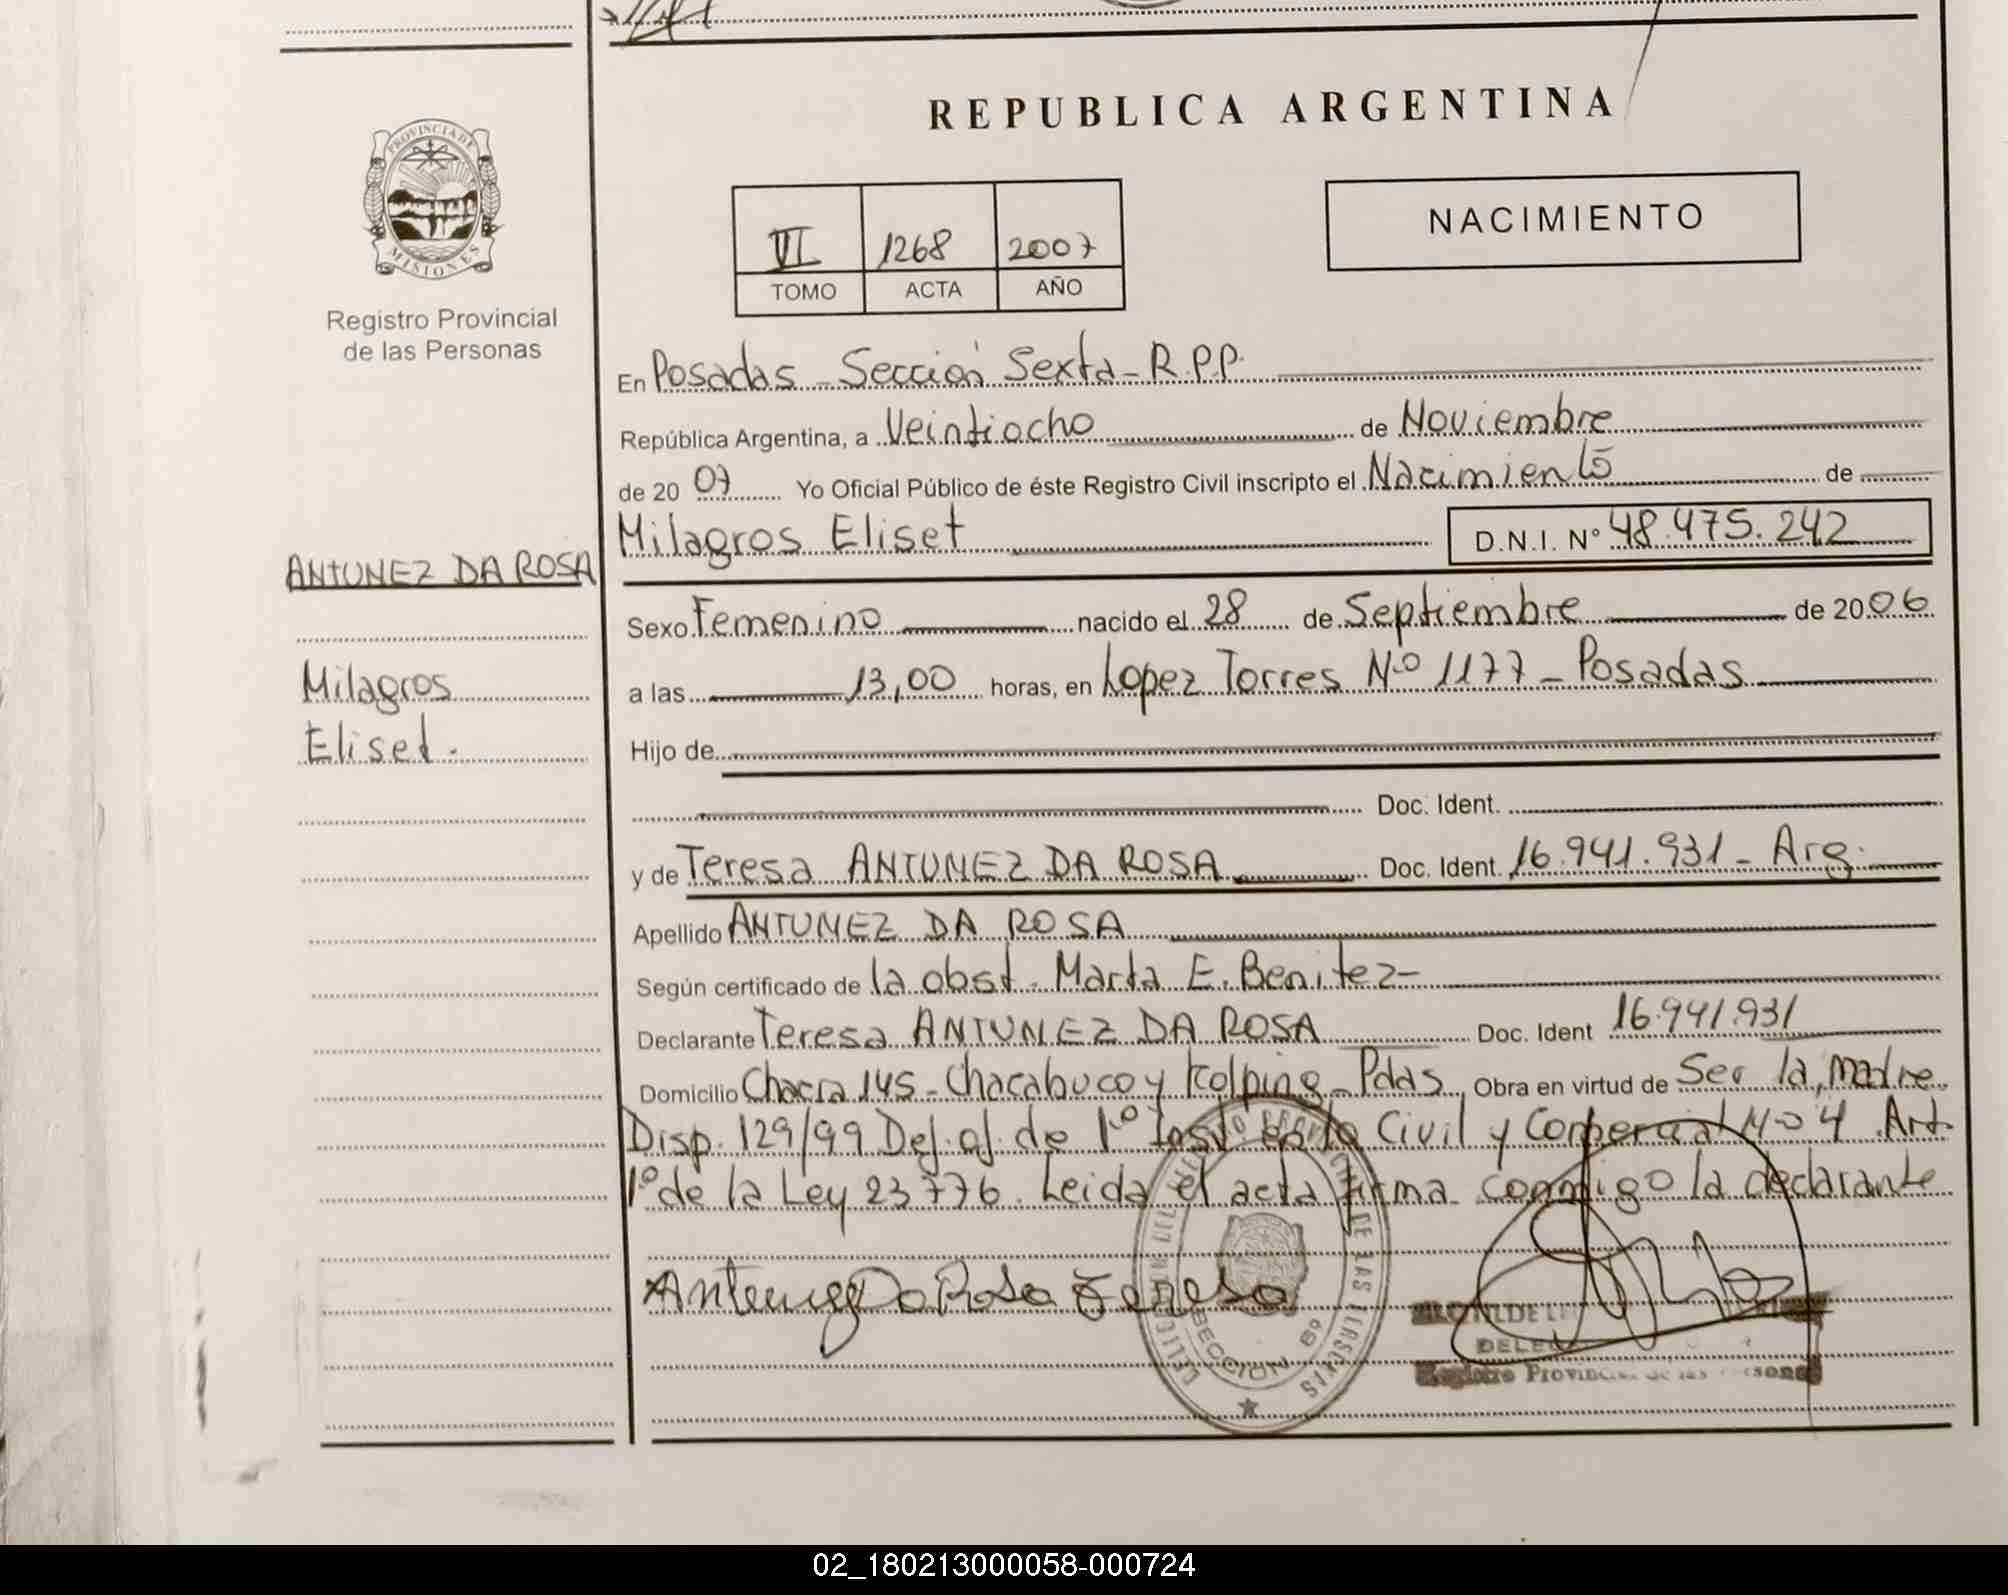 REPUBLICA ARGENTINA
PROVINCIA DE
MISIONES
Registro Provincial
de las Personas
VI 1268 2007
TOMO ACTA AÑO
NACIMIENTO
En Posadas - Sección Sexta - R.P.P.
República Argentina, a Veintiocho de Noviembre
de 20 07 Yo Oficial Público de éste Registro Civil inscripto el Nacimiento de
Milagros Eliset D.N.I. N° 48.475.242
ANTUNEZ DA ROSA
Milagros
Eliset.
Sexo Femenino nacido el 28 de Septiembre de 20 06
a las 13,00 horas, en Lopez Torres Nº 1177 - Posadas
Hijo de
Doc. Ident.
y de Teresa ANTUNEZ DA ROSA Doc. Ident. 16.941.931 - Arg.
Apellido ANTUNEZ DA ROSA
Según certificado de la obst. Marta E. Benitez -
Declarante Teresa ANTUNEZ DA ROSA Doc. Ident 16.941.931
Domicilio Chacra 145 - Chacabuco y Kolping - Pdas Obra en virtud de Ser la madre.
Disp. 129/99 Def. of. de 1º Inst. en lo Civil y Comercial Nº 4 Art.
1º de la Ley 23776. Leida el acta firma conmigo la declarante
Antunez Da Rosa Teresa
DE LAS PERSONAS
SECCION 6º
Registro Provincial de las Personas
02_180213000058-000724